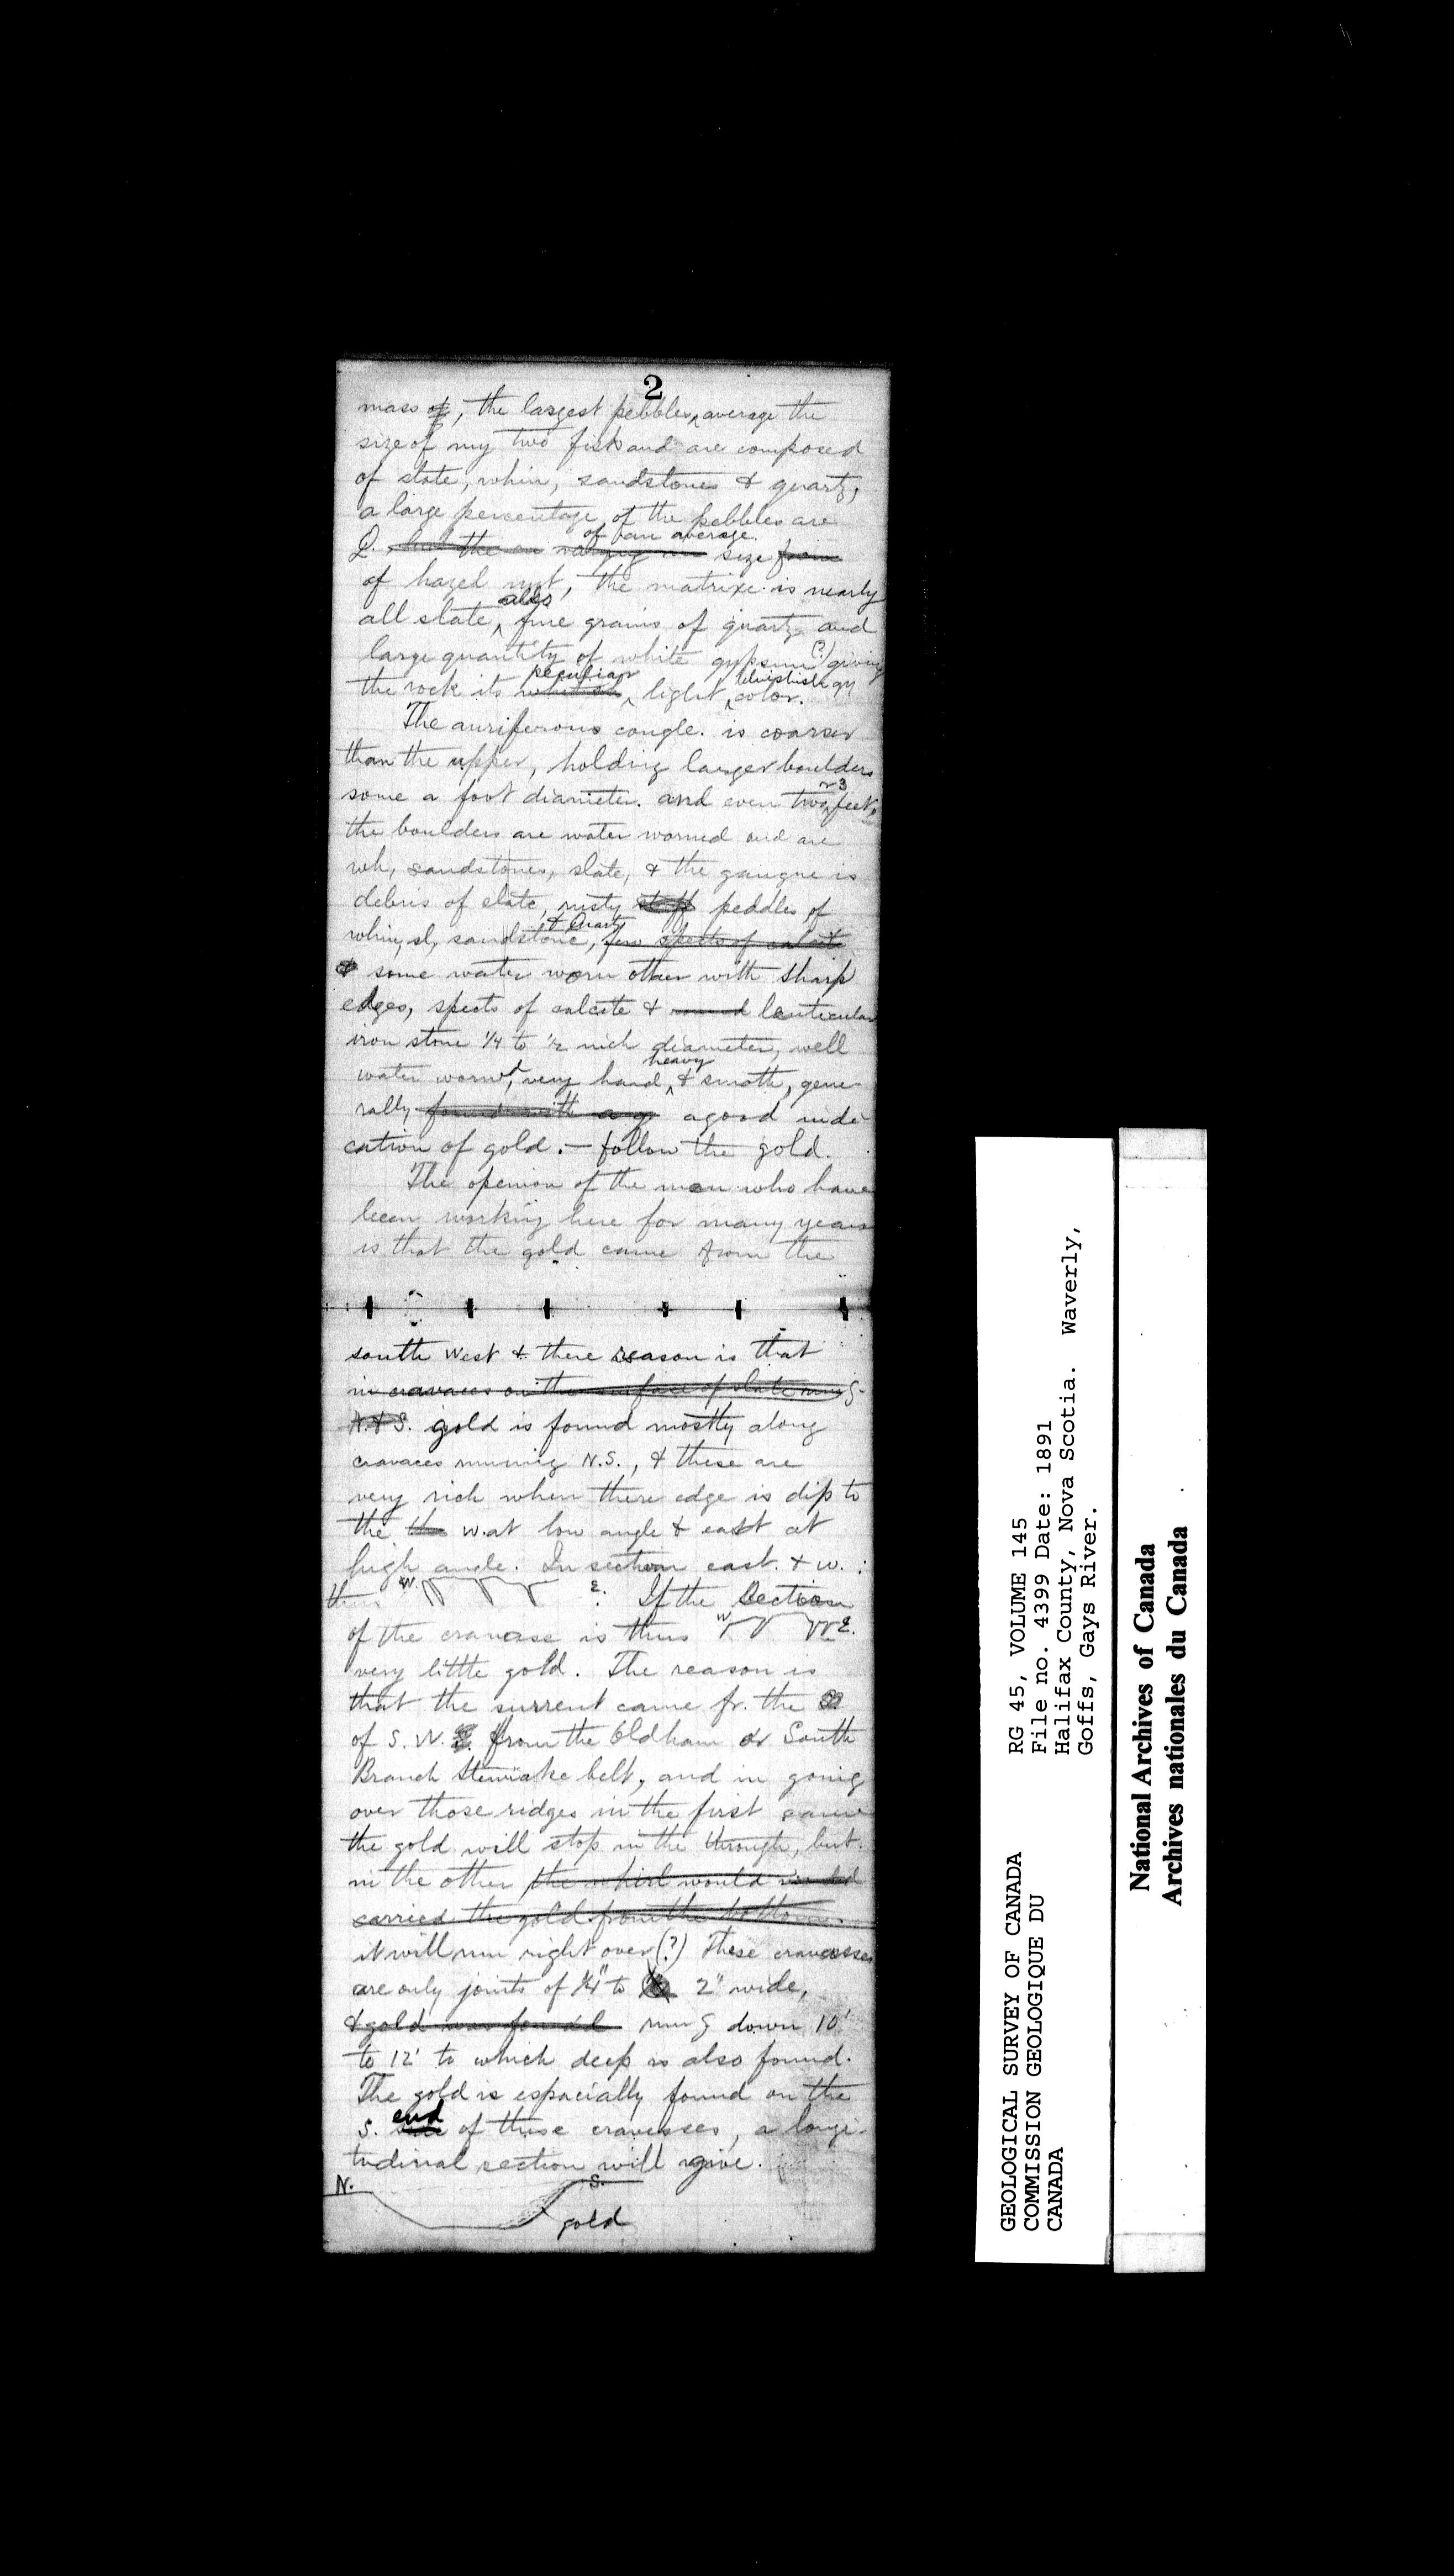 2
mass of, the largest pebbles average the
size of my two fist and are composed
of slate, whin, sandstones & quartz,
a large percentage of the pebbles are
Q. of fair average size
of hazel nut, the matrixe is nearly
all slate, also fine grains of quartz and
large quantity of white gypsum (?) giving
the rock its peculiar light bluishish gy color.
The auriferous congle. is coarser
than the upper, holding larger boulders
some a foot diameter. and even two or 3 feet,
the boulders are water worned and are
wh, sandstones, slate, & the gangue is
debris of slate, rusty peddles of
whin, sl, sandstone, & Quartz few spects of calcite
& some water worn other with sharp
edges, spects of calcite & lenticular
iron stone 1/4 to 1/2 inch diameter, well
water worned, very hard, heavy & smoth, gene-
rally found with a g a good indi-
cation of gold. — follow the gold.
The openion of the men who have
been working here for many years
is that the gold came from the
south West & there reason is that
in cravaces on the surface of slate rung
N. & S. gold is found mostly along
cravaces running N.S., & these are
very rich when there edge is dip to
the the W. at low angle & east at
high angle. In section east. & w. :
thus W. E. If the Section
of the cravasse is thus W E.
very little gold. The reason is
that the surrent came fr. the
of S. W. from the Oldham or South
Branch Stewiake belt, and in going
over those ridges in the first
the gold will stop in the through, but
in the other the whirl would
carried the gold from the bottom.
it will run right over (?) These cravasses
are only joints of 1/4" to 2" wide,
& gold was found rung down 10'
to 12' to which deep is also found.
The gold is espacially found on the
S. end of these cravesses, a longi-
tudinal section will give.
N. S.
gold
GEOLOGICAL SURVEY OF CANADA
COMMISSION GEOLOGIQUE DU
CANADA
RG 45, VOLUME 145
File no. 4399 Date: 1891
Halifax County, Nova Scotia. Waverly,
Goffs, Gays River.
National Archives of Canada
Archives nationales du Canada